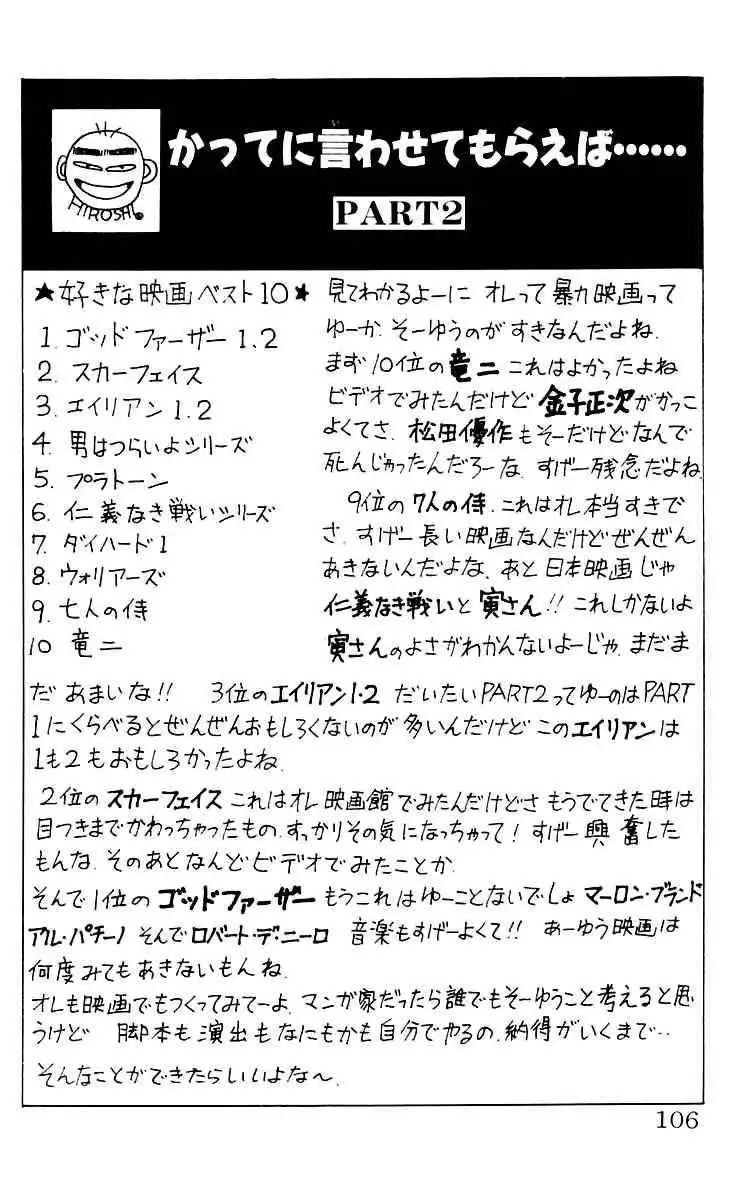 かってに言わせてもらえば……
HIROSHI
PART2
★好きな映画ベスト10★
1. ゴッドファーザー 1.2
2. スカーフェイス
3. エイリアン 1.2
4. 男はつらいよシリーズ
5. プラトーン
6. 仁義なき戦いシリーズ
7. ダイハード1
8. ウォリアーズ
9. 七人の侍
10 竜二
見てわかるよーに オレって暴力映画って
ゆーか.そーゆうのがすきなんだよね.
まず10位の竜二これはよかったよね
ビデオでみたんだけど 金子正次がかっこ
よくてさ. 松田優作もそーだけどなんで
死んじゃったんだろーな. すげー残念だよね.
9位の7人の侍.これはオレ本当すきで
さ.すげー長い映画なんだけどぜんぜん
あきないんだよな.あと日本映画じゃ
仁義なき戦いと寅さん!! これしかないよ
寅さんのよさがわかんないよーじゃ.まだま
だ あまいな!! 3位のエイリアン1・2 だいたいPART2ってゆーのはPART
1にくらべるとぜんぜんおもしろくないのが多いんだけどこのエイリアンは
1も2もおもしろかったよね.
2位のスカーフェイスこれはオレ映画館でみたんだけどさ もうでてきた時は
目つきまでかわっちゃったもの.すっかりその気になっちゃって! すげー興奮した
もんな.そのあとなんどビデオでみたことか.
そんで1位のゴッドファーザー もうこれはゆーことないでしょ マーロン・ブランド
アル・パチーノ そんでロバート・デ・ニーロ 音楽もすげーよくて!! あーゆう映画は
何度みてもあきないもんね.
オレも映画でもつくってみてーよ.マンガ家だったら誰でもそーゆうこと考えると思
うけど 脚本も演出もなにもかも自分でやるの.納得がいくまで…
そんなことができたらいいよな〜.
106